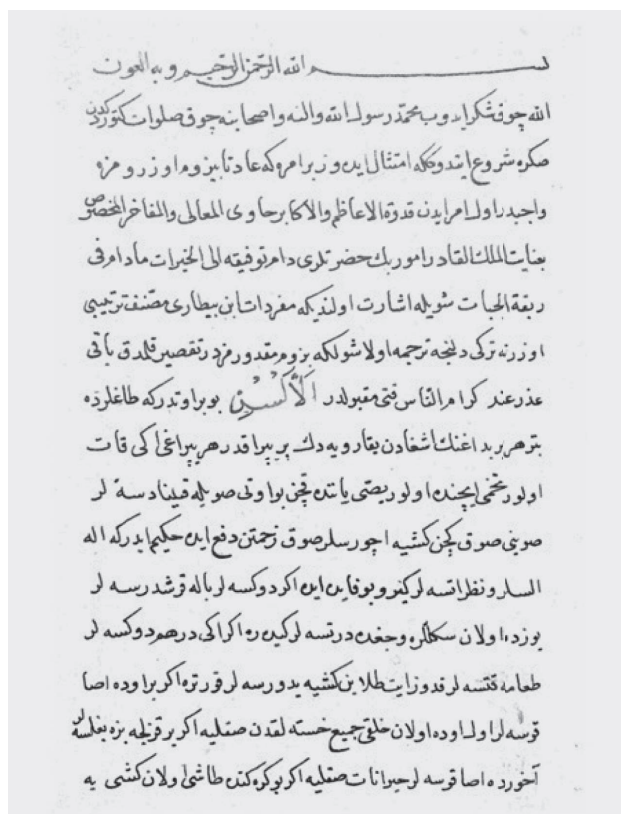 بسم الله الرحمن الرحيم وبه العون
الله چوق شكر ايدوب محمد رسول الله والنه واصحابنه چوق صلوات كتوردكدن
صكره شروع ايتدوكله امتثال ايده وز بر امره كه عادتا بيزوم اوزرومزه
واجبدر اول امر ايدن قدوة الاعاظم والاكابر حاوى المعالى والمفاخر المخصوص
بعنايت الملك القادر امور بك حضرتلرى دام توفيقه الى الخيرات مادام فى
ربقة الحيات شويله اشارت اولنديكه مفردات ابن بيطارى مصنف ترتيبى
اوزرنه تركى دلنجه ترجمه اولا شولكه بزوم مقدورمزدر تقصير قلمدق باقى
عذر عند كرام الناس فتى مقبولدر الاكسن بو بر اوتدر كه طاغلرده
بتر هر بر بداغنك اشغادن يقارويه دك بر يپراقدر هر يپراغى ايكى قات
اولور تخمى ايچنده اولور يصى يانده قچن بو اوتى صويله قينادسه لر
صوينى صوق كچن كشيه اچورسلر صوق زحمتن دفع ايده حكيم ايدر كه اله
السلر و نظر اتسه لر كيرو بو فايده ايده اكر دوكسه لر باله قرشدرسه لر
يوزده اولان سكللره وجغده درتسه لر كيده ره اكر ايكى درهم دوكسه لر
طعامه قتسه لر قدوز ايت طلاين كشيه يدورسه لر قورتره اكر بر اوده اصا
قوسه لر اول اوده اولان خلقى جميع خسته لقدن صقليه اكر بر قزلجه بزه بغلسه لر
آخورده اصا قوسه لر حيوانات صقليه اكر بو كره كتى طاشى اولان كشى يه